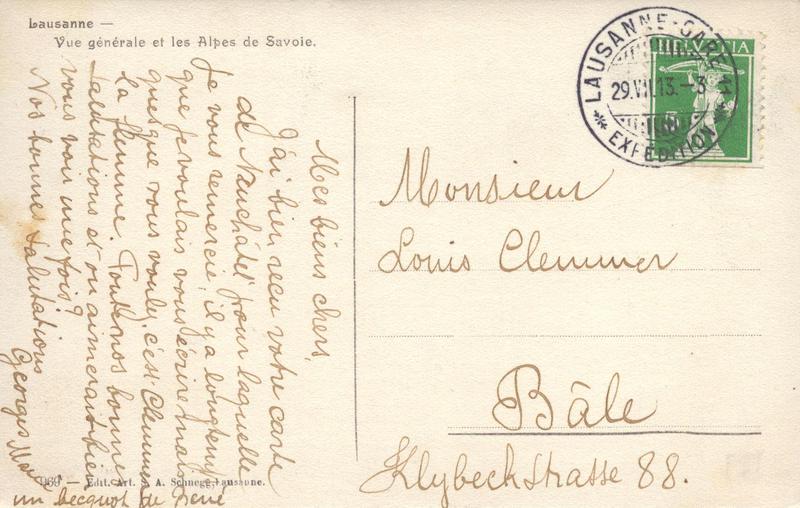 Lausanne —
Vue générale et les Alpes de Savoie.
Mes biens chers,
J'ai bien reçu votre carte
de Neuchâtel pour laquelle
je vous remercie, il y a longtemps
que je voulais vous écrire mais
que vous voulez, c'est Clemmer
la flemme. Toutes nos bonnes
salutations et on aimerait bien
vous voir une fois?
Nos bonnes salutations
Georges
un becquot de René
969 — Edit. Art. S. A. Schnegg, Lausanne.
LAUSANNE-GARE
29.VII.13.-3
EXPÉDITION
HELVETIA
5
Monsieur
Louis Clemmer
Bâle
Klybeckstrasse 88.